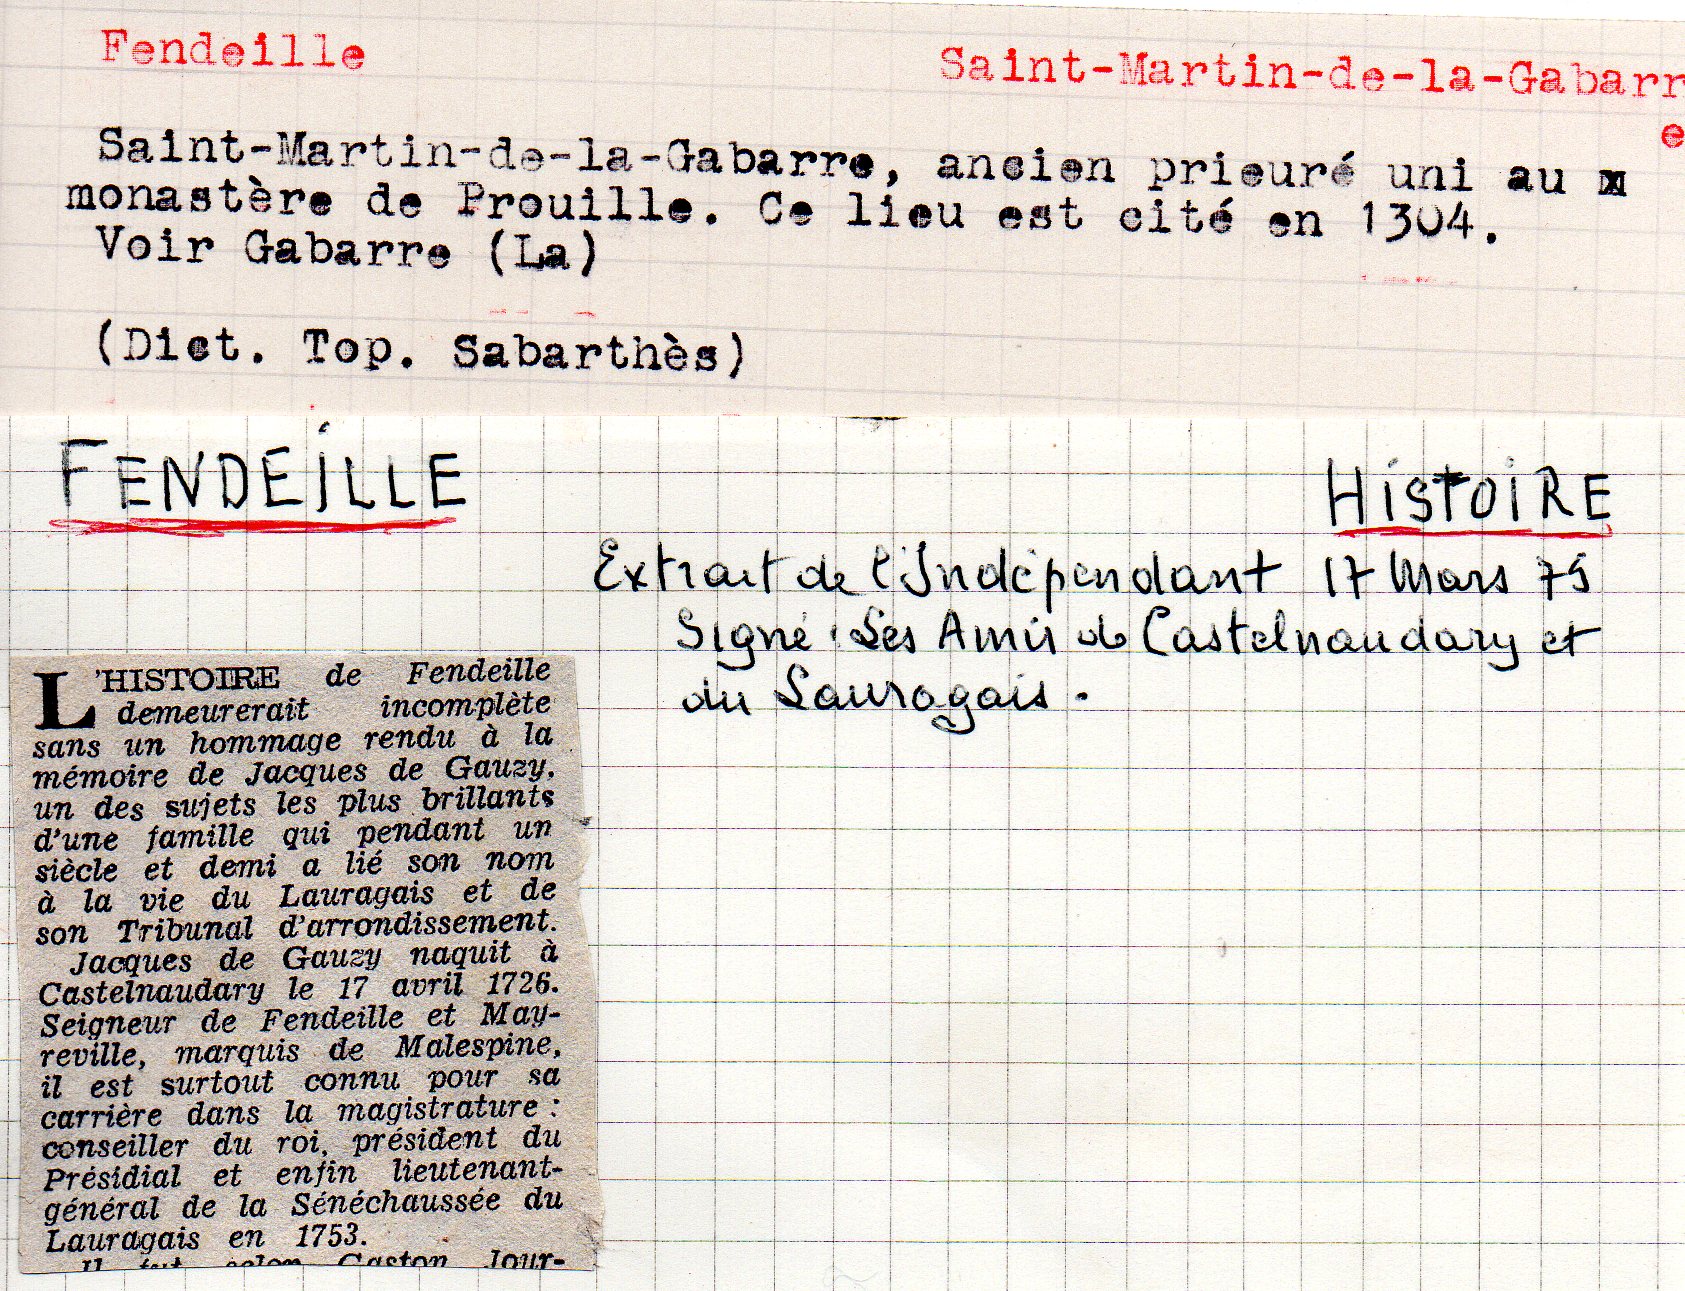 Fendeille Saint-Martin-de-la-Gabarr
e
Saint-Martin-de-la-Gabarre, ancien prieuré uni au x
monastère de Prouille. Ce lieu est cité en 1304.
Voir Gabarre (La)
(Dict. Top. Sabarthès)
FENDEILLE HISTOIRE
Extrait de l'Indépendant 17 Mars 75
Signé : Les Amis de Castelnaudary et
du Lauragais.
L'HISTOIRE de Fendeille
demeurerait incomplète
sans un hommage rendu à la
mémoire de Jacques de Gauzy,
un des sujets les plus brillants
d'une famille qui pendant un
siècle et demi a lié son nom
à la vie du Lauragais et de
son Tribunal d'arrondissement.
Jacques de Gauzy naquit à
Castelnaudary le 17 avril 1726.
Seigneur de Fendeille et May-
reville, marquis de Malespine,
il est surtout connu pour sa
carrière dans la magistrature :
conseiller du roi, président du
Présidial et enfin lieutenant-
général de la Sénéchaussée du
Lauragais en 1753.
Il fut, selon Gaston Jour-